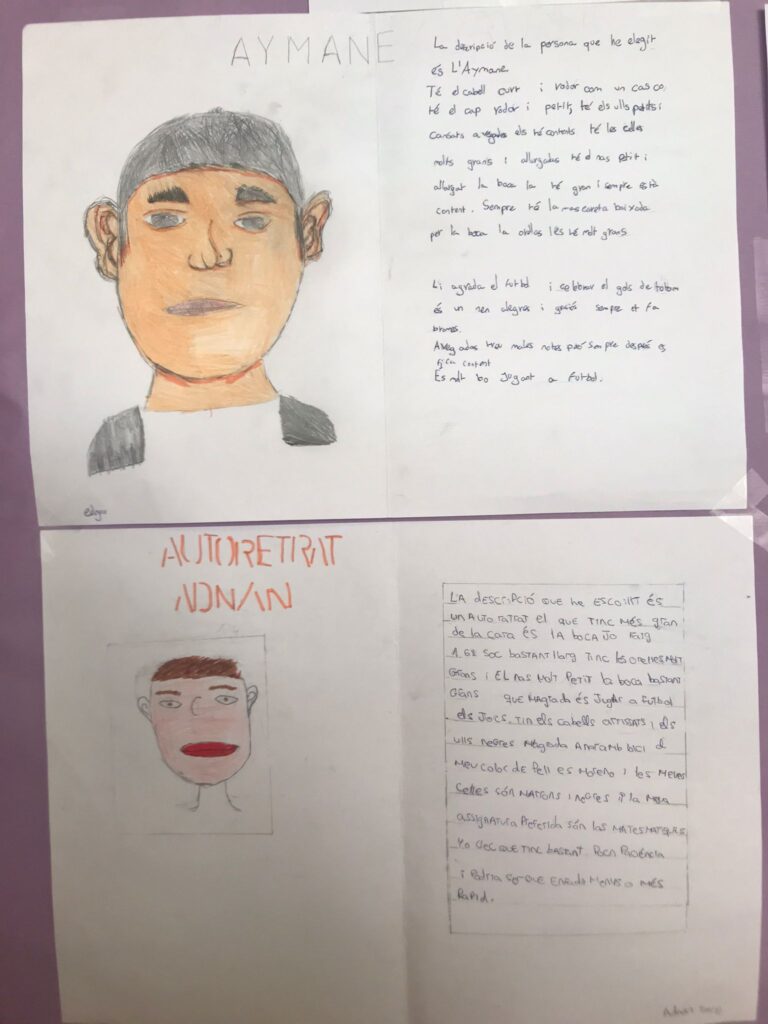 AYMANE
La descripció de la persona que he elegit
és L'Aymane
Té el cabell curt i rodor com un casco,
té el cap rodor i petit, té els ulls petits i
cansats avegades els té contents té les celles
molts grans i allargades té el nas petit i
allargat la boca la té gran i sempre està
content. Sempre té la mascareta baixada
per la boca la orelles les té molt grans.
Li agrada el futbol i celebrar el gols de tothom
és un nen alegres i graciós sempre et fa
bromes.
Avegades treu males notes però sempre després es
fica content
Es molt bo jugant a futbol.
AUTORETRAT
ADNAN
LA descripció que he escollit és
un AUTO RATRAT el que TINC MÉS gran
de la cara és la boca Jo faig
1,68 Soc bastant llarg Tinc les orelles Molt
grans i el nas Molt Petit la boca bastant
grans que Magrada és Jugar a futbol
els Jocs. Tin els cabells arrisats i els
ulls negres Magrada anar amb bici el
Meu color de Pell es Moreno i les Meves
Selles són i negres i la Meva
assignatura Preferida són las MATESMATIQUES
Yo crec que tinc bastant Poca Paciència
i Podria ser que Menys o MÉS
Rapid.